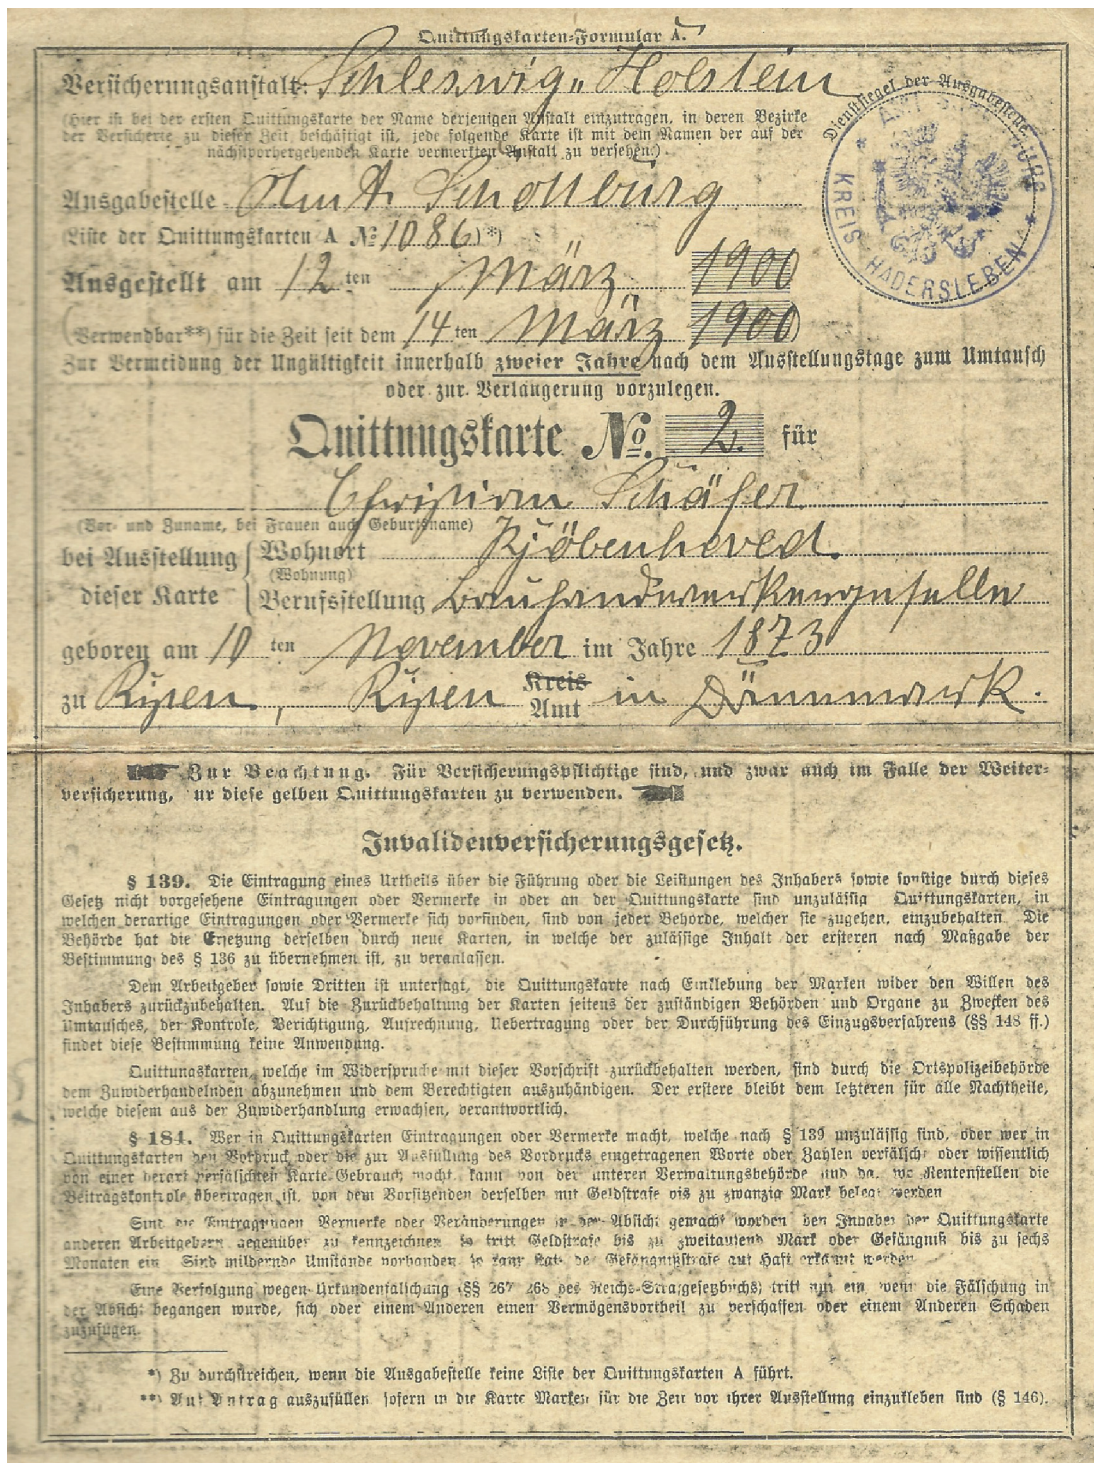 Quittungskarten-Formular A.
Versicherungsanstalt: Schleswig-Holstein
(Hier ist bei der ersten Quittungskarte der Name derjenigen Anstalt einzutragen, in deren Bezirke
der Versicherte zu dieser Zeit beschäftigt ist, jede folgende Karte ist mit dem Namen der auf der
nächstvorhergehenden Karte vermerkten Anstalt zu versehen.)
Dienstsiegel der Ausgabestelle
KREIS HADERSLEBEN
Ausgabestelle Amt Schottburg
Liste der Quittungskarten A № 1086)*)
Ausgestellt am 12 ten März 1900
(Verwendbar**) für die Zeit seit dem 14 ten März 1900)
Zur Vermeidung der Ungültigkeit innerhalb zweier Jahre nach dem Ausstellungstage zum Umtausch
oder zur Verlängerung vorzulegen.
Quittungskarte No. 2. für
Christian Schäfer
(Vor- und Zuname, bei Frauen auch Geburtsname)
bei Ausstellung dieser Karte
Wohnort Kjöbenhoved.
(Wohnung)
Berufsstellung Bauhandwerkergeselle
geboren am 10 ten November im Jahre 1873
zu Ripen, Ripen Kreis Amt in Dänemark.
Zur Beachtung. Für Versicherungspflichtige sind, und zwar auch im Falle der Weiter-
versicherung, ur diese gelben Quittungskarten zu verwenden.
Invalidenversicherungsgesetz.
§ 139. Die Eintragung eines Urtheils über die Führung oder die Leistungen des Inhabers sowie sonstige durch dieses
Gesetz nicht vorgesehene Eintragungen oder Vermerke in oder an der Quittungskarte sind unzulässig. Quittungskarten, in
welchen derartige Eintragungen oder Vermerke sich vorfinden, sind von jeder Behörde, welcher sie zugehen, einzubehalten. Die
Behörde hat die Ersetzung derselben durch neue Karten, in welche der zulässige Inhalt der ersteren nach Maßgabe der
Bestimmung des § 136 zu übernehmen ist, zu veranlassen.
Dem Arbeitgeber sowie Dritten ist untersagt, die Quittungskarte nach Einklebung der Marken wider den Willen des
Inhabers zurückzubehalten. Auf die Zurückbehaltung der Karten seitens der zuständigen Behörden und Organe zu Zwecken des
Umtausches, der Kontrole, Berichtigung, Aufrechnung, Uebertragung oder der Durchführung des Einzugsverfahrens (§§ 148 ff.)
findet diese Bestimmung keine Anwendung.
Quittungskarten, welche im Widerspruche mit dieser Vorschrift zurückbehalten werden, sind durch die Ortspolizeibehörde
dem Zuwiderhandelnden abzunehmen und dem Berechtigten auszuhändigen. Der erstere bleibt dem letzteren für alle Nachtheile,
welche diesem aus der Zuwiderhandlung erwachsen, verantwortlich.
§ 184. Wer in Quittungskarten Eintragungen oder Vermerke macht, welche nach § 139 unzulässig sind, oder wer in
Quittungskarten den Vordruck oder die zur Ausfüllung des Vordrucks eingetragenen Worte oder Zahlen verfälscht oder wissentlich
von einer derart verfälschten Karte Gebrauch macht, kann von der unteren Verwaltungsbehörde und da, wo Rentenstellen die
Beitragskontrole übertragen ist, von dem Vorsitzenden derselben mit Geldstrafe bis zu zwanzig Mark belegt werden
Sind die Eintragungen Vermerke oder Veränderungen in der Absicht gemacht worden den Inhaber der Quittungskarte
anderen Arbeitgebern gegenüber zu kennzeichnen so tritt Geldstrafe bis zu zweitausend Mark oder Gefängniß bis zu sechs
Monaten ein. Sind mildernde Umstände vorhanden so kann statt der Gefängnißstrafe auf Haft erkannt werden.
Eine Verfolgung wegen Urkundenfälschung (§§ 267 268 des Reichs-Strafgesetzbuchs) tritt nur ein wenn die Fälschung in
der Absicht begangen wurde, sich oder einem Anderen einen Vermögensvortheil zu verschaffen oder einem Anderen Schaden
zuzufügen.
*) Zu durchstreichen, wenn die Ausgabestelle keine Liste der Quittungskarten A führt.
**) Auf Antrag auszufüllen sofern in die Karte Marken für die Zeit vor ihrer Ausstellung einzukleben sind (§ 146).